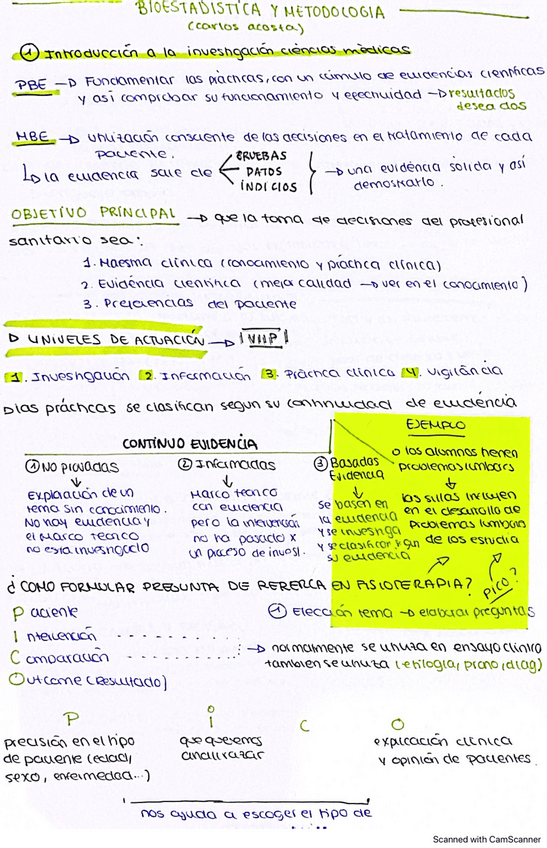 BIOESTADÍSTICA Y METODOLOGIA
(carlos acosta)
① Introducción a la investigación ciencias médicas
PBE → Fundamentar las prácticas, con un cúmulo de evidencias científicas
y así comprobar su funcionamiento y efectividad → resultados
deseados
MBE → utilización consciente de las decisiones en el tratamiento de cada
paciente.
↳ la evidencia sale de
PRUEBAS
DATOS
INDICIOS
→ una evidencia sólida y así
demostrarlo.
OBJETIVO PRINCIPAL → que la toma de decisiones del profesional
sanitario sea:
1. Maestria clínica (conocimiento y práctica clínica)
2. Evidencia científica (mejor calidad → ver en el conocimiento)
3. Preferencias del paciente
NIVELES DE ACTUACIÓN → VIIP
1. Investigación 2. Información 3. Práctica clínica 4. Vigilancia
las prácticas se clasifican segun su continuidad de evidencia
CONTINUO EVIDENCIA
① NO probadas
↓
Explicación de un
tema sin conocimiento.
No hay evidencia y
el marco teorico
no esta investigado
② Informadas
↓
Marco teorico
con evidencia
pero la intervención
no ha pasado x
un proceso de invest.
③ Basadas
Evidencia
↓
se basan en
la evidencia
y se investiga
y se clasifican x gun
su evidencia
EJEMPLO
los alumnos tienen
problemas lumbars
↓
las sillas influyen
en el desarrollo de
problemas lumbars
de los estudia
PICO?
¿COMO FORMULAR PREGUNTA DE RERERCA EN FISIOTERAPIA?
Paciente
Intervención
Comparación
Outcome (resultado)
① Elección tema → elaborar preguntas
→ normalmente se utiliza en ensayo clínico
tambien se utiliza (etilogia, prono, diag)
P
precisión en el tipo
de paciente (edad,
sexo, enfermedad...)
i
que queremos
analizar
C
O
explicación clinica
y opinión de pacientes.
nos ayuda a escoger el tipo de
Scanned with CamScanner